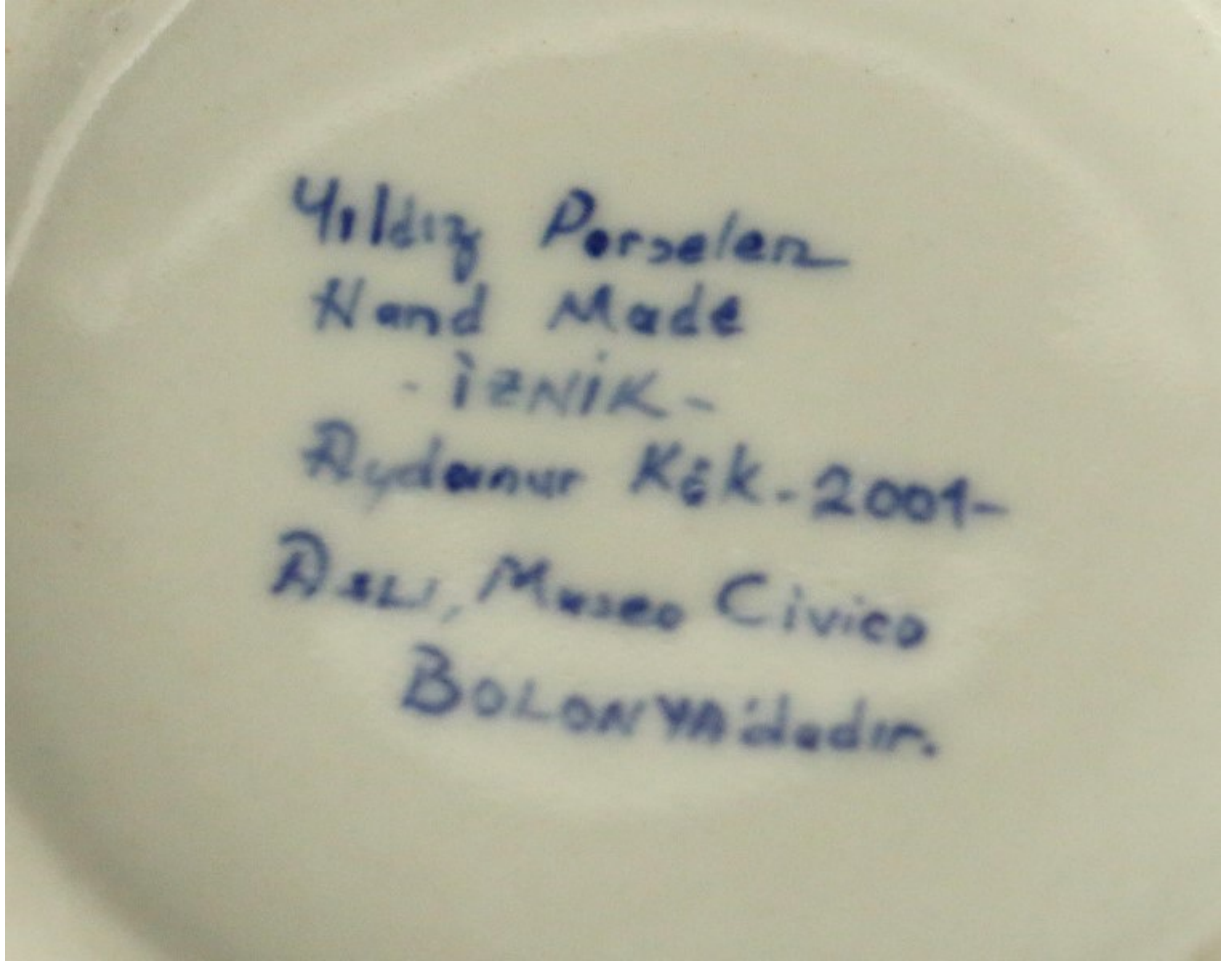 Yıldız Porselen
Hand Made
- İZNİK -
Aydanur Kök - 2001 -
Aslı, Museo Civico
BOLONYA'dadır.